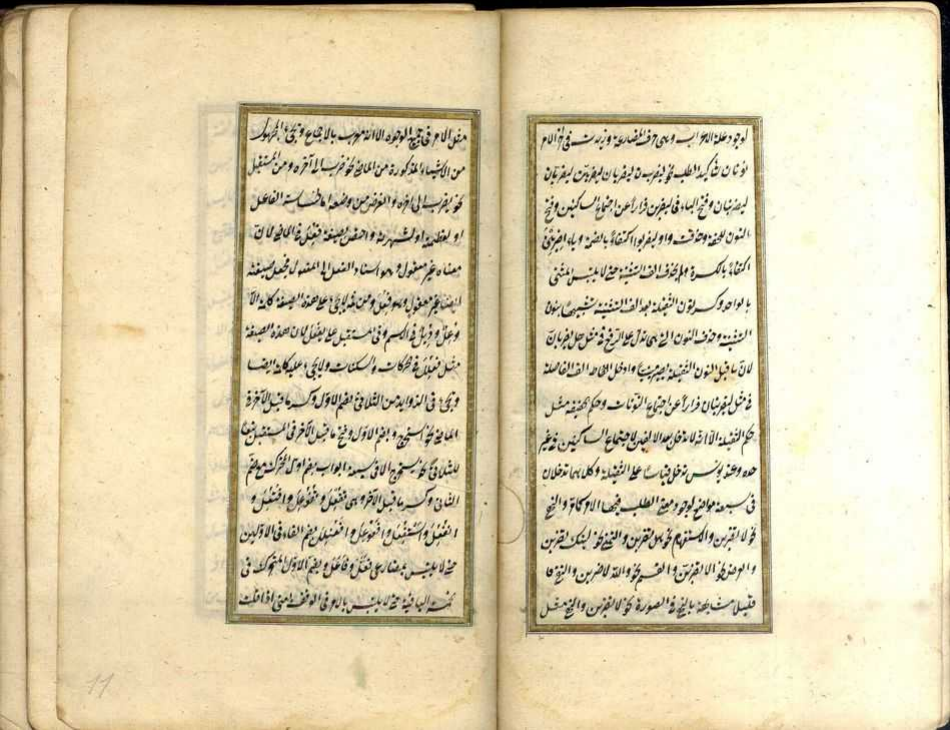 لوجود علة الاعراب وهى حرف المضارعة وزيدت فى آخر الامر
نونان لتأكيد الطلب نحو ليضربن ليضربان ليضربن لتضربن لتضربان
ليضربنان وفتح الباء فى ليضربن فرارا عن اجتماع الساكنين وفتح
النون للخفة وحذفت واو ليضربوا اكتفاء بالضمة وياء اضربى
اكتفاء بالكسرة ولم يحذف الف التثنية حتى لا يلتبس المثنى
بالواحد وكسر نون الثقيلة بعد الف التثنية لشبهها بنون
التثنية وحذف النون التى هى تدل على الرفع فى مثل هل يضربان
لان ما قبل النون الثقيلة يصير مبنيا وادخل الف الفاصلة
فى مثل ليضربنان فرارا عن اجتماع النونات وحكم الخفيفة مثل
حكم الثقيلة الا انه لا تدخل بعد الالفين لاجتماع الساكنين فى غير
حده وعند يونس تدخل قياسا على الثقيلة وكلاهما تدخلان
فى سبعة مواضع لوجود معنى الطلب فيها الامر كما مر والنهى
نحو لا تضربن والاستفهام نحو هل تضربن والتمنى نحو ليتك تضربن
والعرض نحو الا تضربن والقسم نحو والله لاضربن والنفى
قليلا مشابهة بالنهى فى الصورة نحو لا تضربن والنهى مثل
مثل الامر فى جميع الوجوه الا انه معرب بالاجماع ويجئ المجهول
من الاشياء المذكورة من الماضى نحو ضرب الى آخره ومن المستقبل
نحو يضرب الى آخره والغرض من وضعه اما خساسة الفاعل
او لعظمته او لشهرته واختص بصيغة فعل فى الماضى لان
معناه غير معقول وهو اسناد الفعل الى المفعول فجعل صيغته
ايضا غير معقول وهو فعل ومن ثمه لا يجئ على هذه الصيغة كلمة الا
وعل ودئل فى الاسم وفى المستقبل على يفعل لان هذه الصيغة
مثل فعلل فى الحركات والسكنات ولا يجئ عليه كلمة ايضا
ويجئ فى الزوايد من الثلاثى بضم الاول وكسر ما قبل الآخر فى
الماضى نحو استخرج وبضم الاول وفتح ما قبل الآخر فى المستقبل تبعا
للثلاثى نحو يستخرج الا فى سبعة ابواب بضم اول المتحرك مع ضم
الثانى وكسر ما قبل الآخر وهى تفعل وتفوعل وافتعل و
انفعل واستفعل وافعوعل وافعنلل بضم الفاء فى الاولين
حتى لا يلتبس بمضارعى فعل وفاعل وبضم الاول المتحرك فى
الخمسة الباقية حتى لا يلتبس بالامر فى الوقف يعنى اذا قلت
11